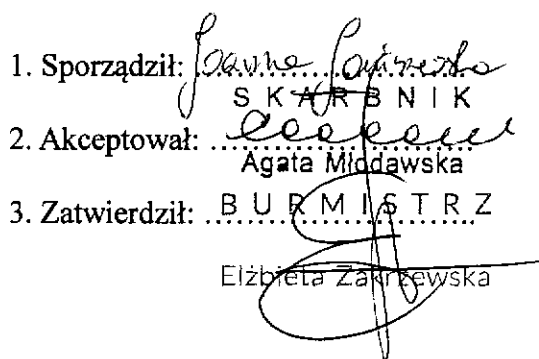 1. Sporządził: Joanna
S K A R B N I K
2. Akceptował:
Agata Młodawska
3. Zatwierdził: B U R M I S T R Z
Elżbieta Zakrzewska